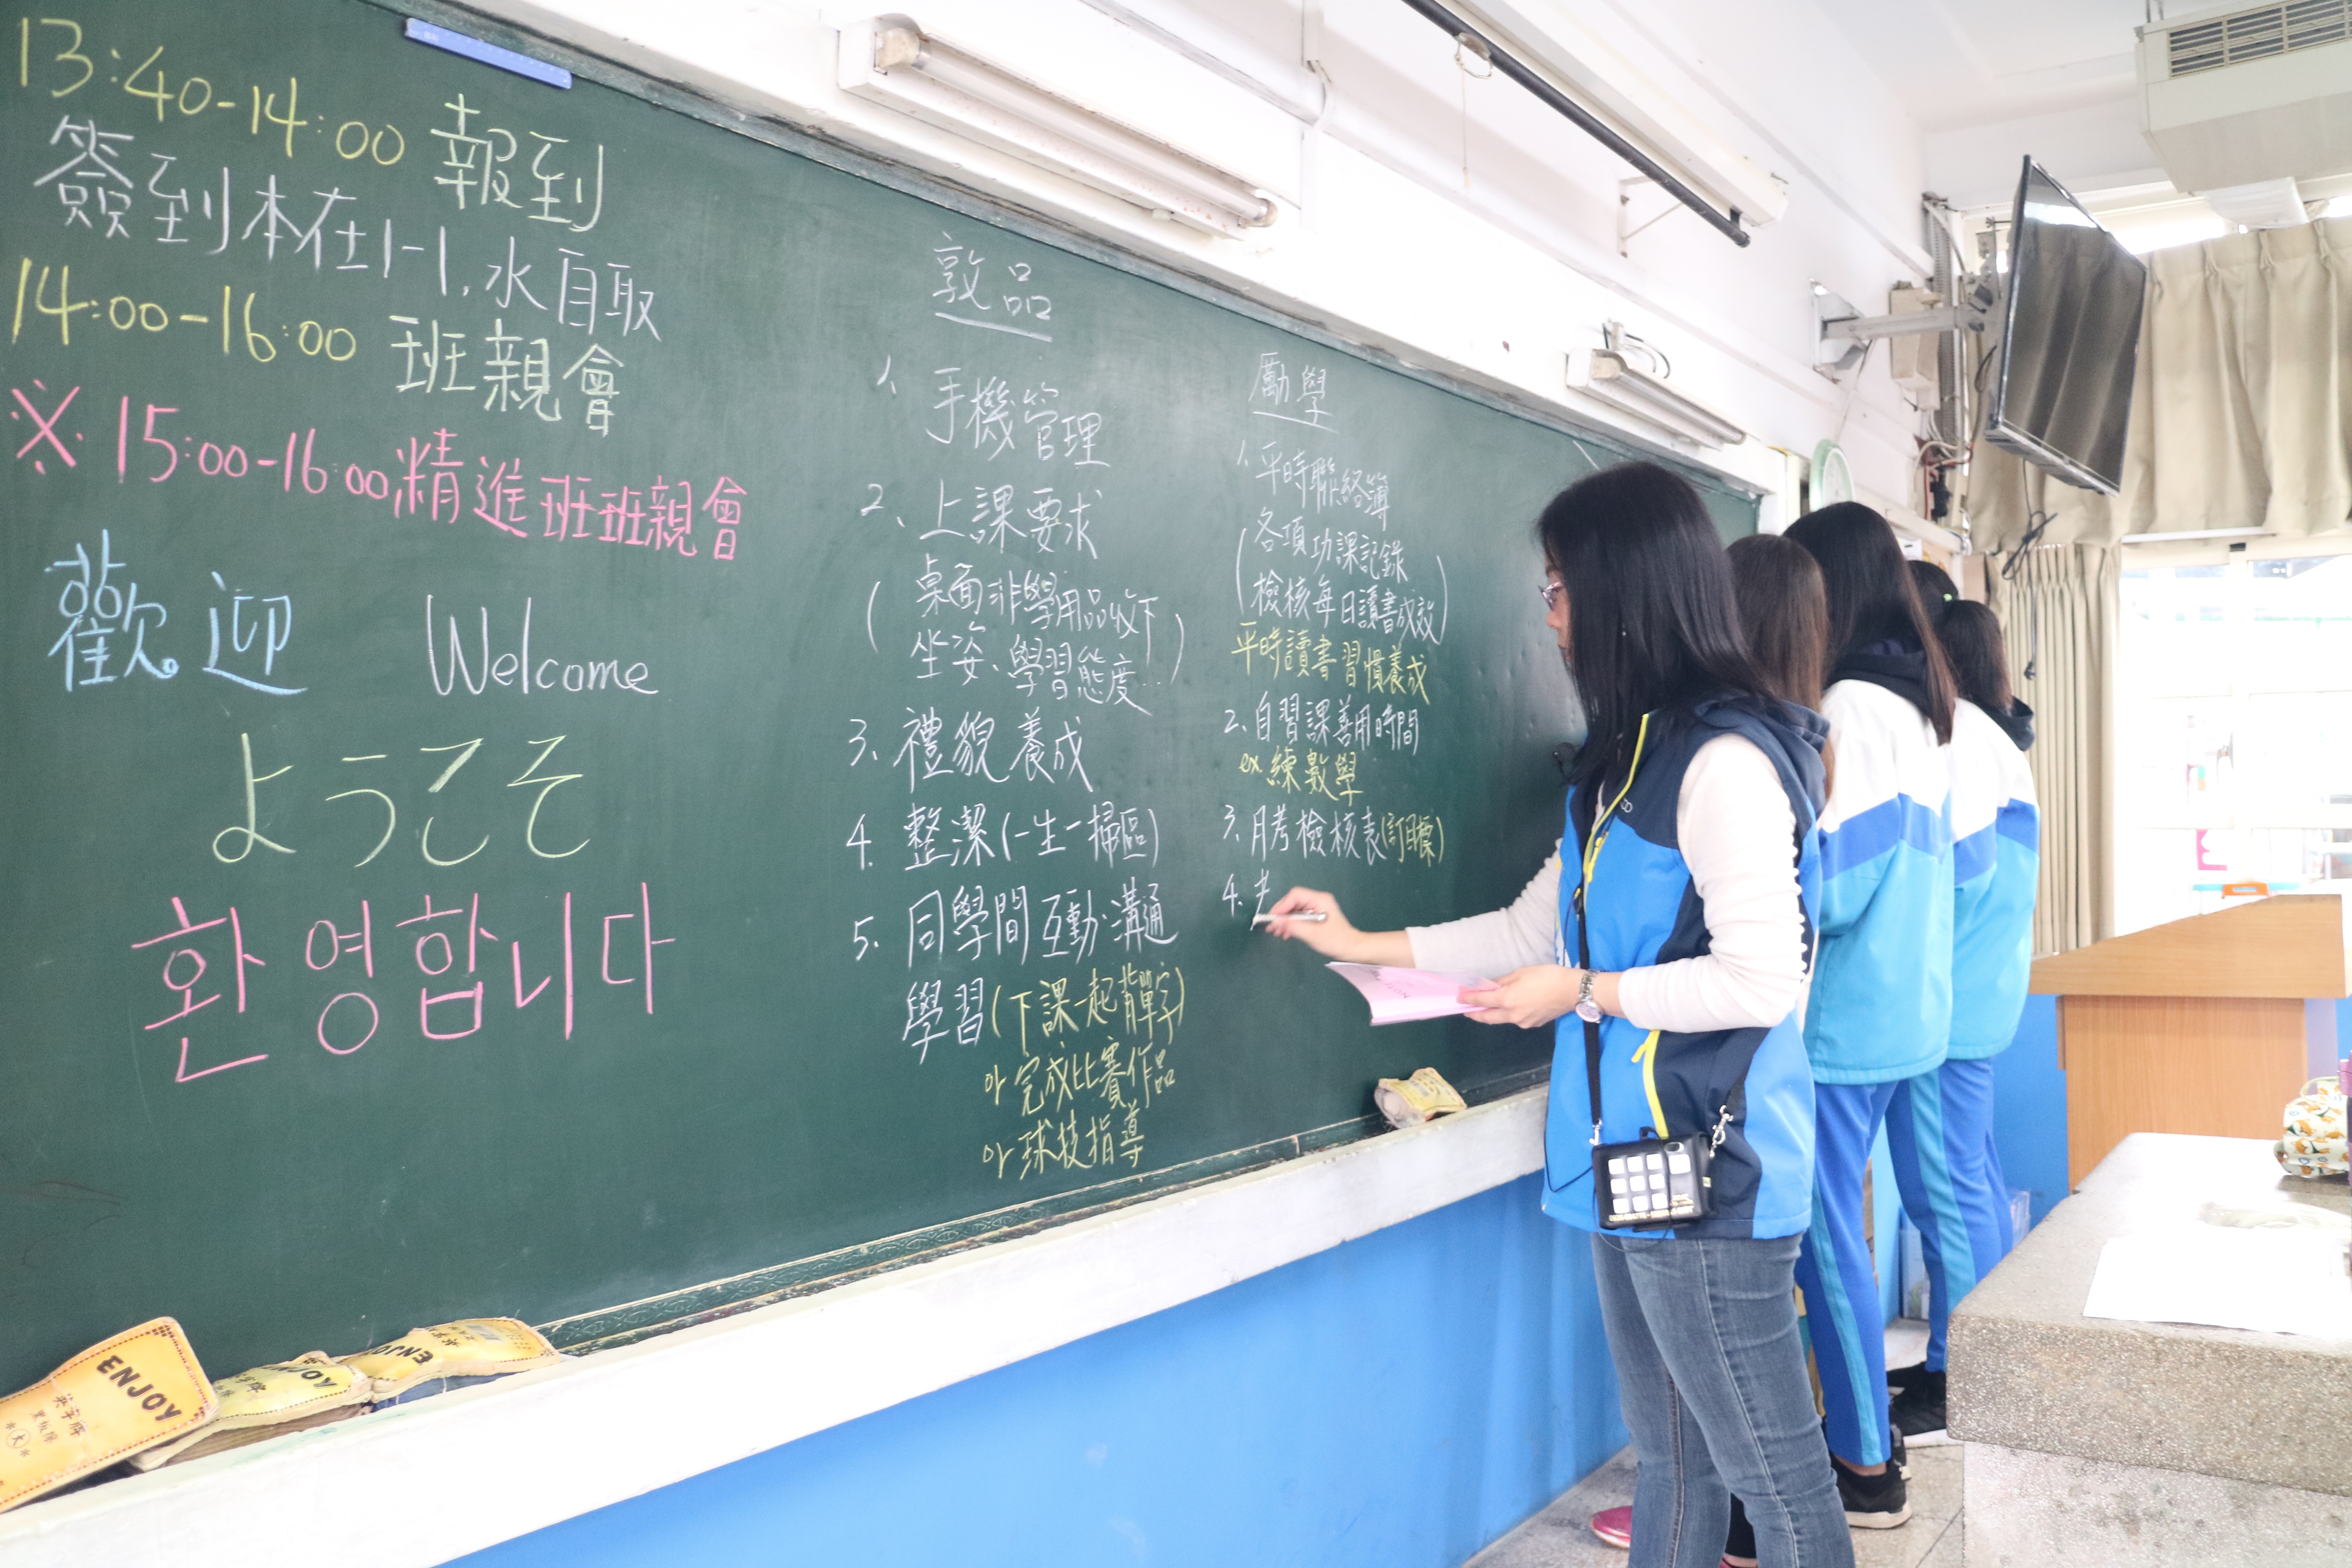 13:40-14:00 報到
簽到本在1-1.水自取
14:00-16:00 班親會
※15:00-16:00精進班班親會
歡迎 Welcome
ようこそ
환영합니다
敦品
1、手機管理
2、上課要求
(桌面非學用品收下
坐姿、學習態度...)
3、禮貌養成
4. 整潔(一生一掃區)
5. 同學間互動.溝通
學習(下課一起背單字)
or 完成比賽作品
or 球技指導
勵學
1、平時聯絡簿
(各項功課記錄
檢核每日讀書成效)
平時讀書習慣養成
2.自習課善用時間
ex.練數學
3.月考檢核表(訂目標)
4.
ENJOY
ENJOY
ENJOY